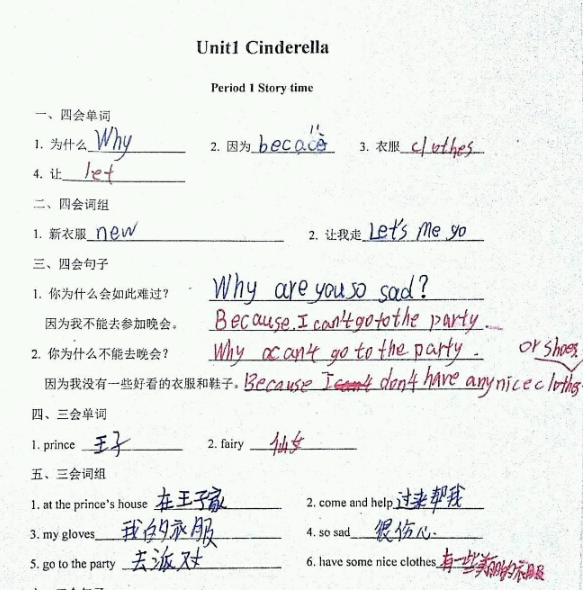 Unit1 Cinderella
Period 1 Story time
一、四会单词
1. 为什么 Why 2. 因为 3. 衣服 clothes
4. 让 let
二、四会词组
1. 新衣服 new 2. 让我走 Let's me go
三、四会句子
1. 你为什么会如此难过? Why are you so sad?
因为我不能去参加晚会。 Because I can't go to the party.
2. 你为什么不能去晚会? Why can't go to the party. or shoes
因为我没有一些好看的衣服和鞋子。 Because I can't don't have any nice clothes
四、三会单词
1. prince 王子 2. fairy 仙女
五、三会词组
1. at the prince's house 在王子家 2. come and help 过来帮我
3. my gloves 我的衣服 4. so sad 很伤心.
5. go to the party 去派对 6. have some nice clothes 有一些美丽的衣服